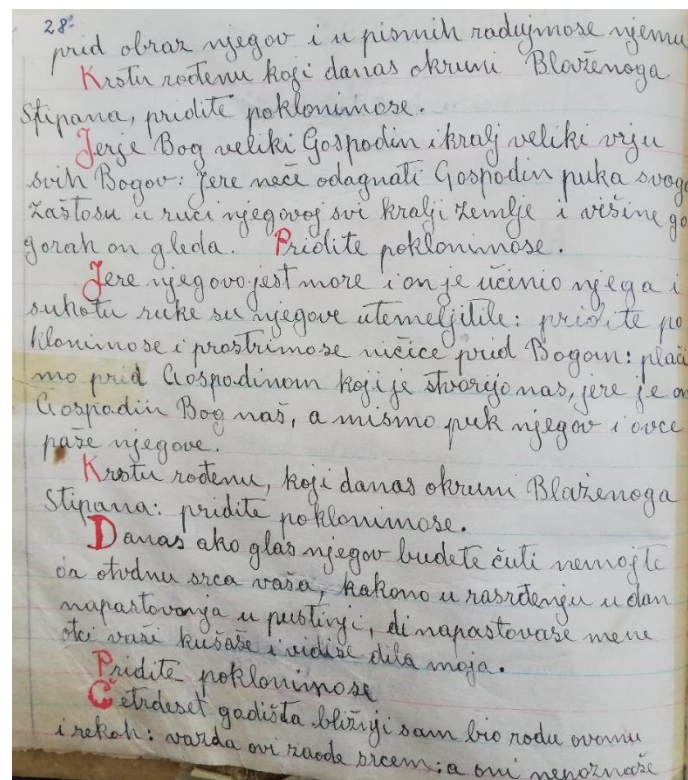 28.
prid obraz njegov i u pismih radujmose njemu
Krstu rođenu koji danas okruni Blaženoga
Stipana, pridite poklonimose.
Jerje Bog veliki Gospodin i kralj veliki vrju
svih Bogov: Jere neće odagnati Gospodin puka svoga
Zaštosu u ruci njegovoj svi kralji zemlje i višine go
gorah on gleda. Pridite poklonimose.
Jere njegovo jest more i on je učinio njega i
suhotu ruke su njegove utemeljitile: pridite po
klonimose i prostrimose ničice prid Bogom: plači
mo prid Gospodinom koji je stvorijo nas, jere je on
Gospodin Bog naš, a mismo puk njegov i ovce
paše njegove.
Krstu rođenu, koji danas okruni Blaženoga
Stipana: pridite poklonimose.
Danas ako glas njegov budete čuti nemojte
da otvdnu srca vaša, kakono u rasrđenju u dan
napastovanja u pustinji, di napastovaše mene
otci vaši kušaše i vidiše dila moja.
Pridite poklonimose
Četrdeset godišta bližnji sam bio rodu ovomu
i rekoh: vazda ovi zaode srcem: a oni nepoznaše